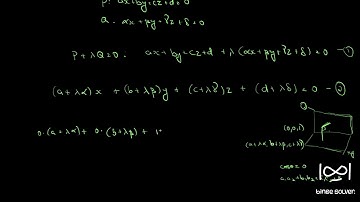 P: ax+by+cz+d=0
Q: αx+βy+γz+δ=0
P+λQ=0. ax+by+cz+d + λ(αx+βy+γz+δ)=0 —①
(a+λα)x + (b+λβ)y + (c+λγ)z + (d+λδ)=0 —②
(0,0,1)
0·(a+λα) + 0·(b+λβ) + 1·
(a+λα, b+λβ, c+λγ)
xy
cosθ=0
binee solver.